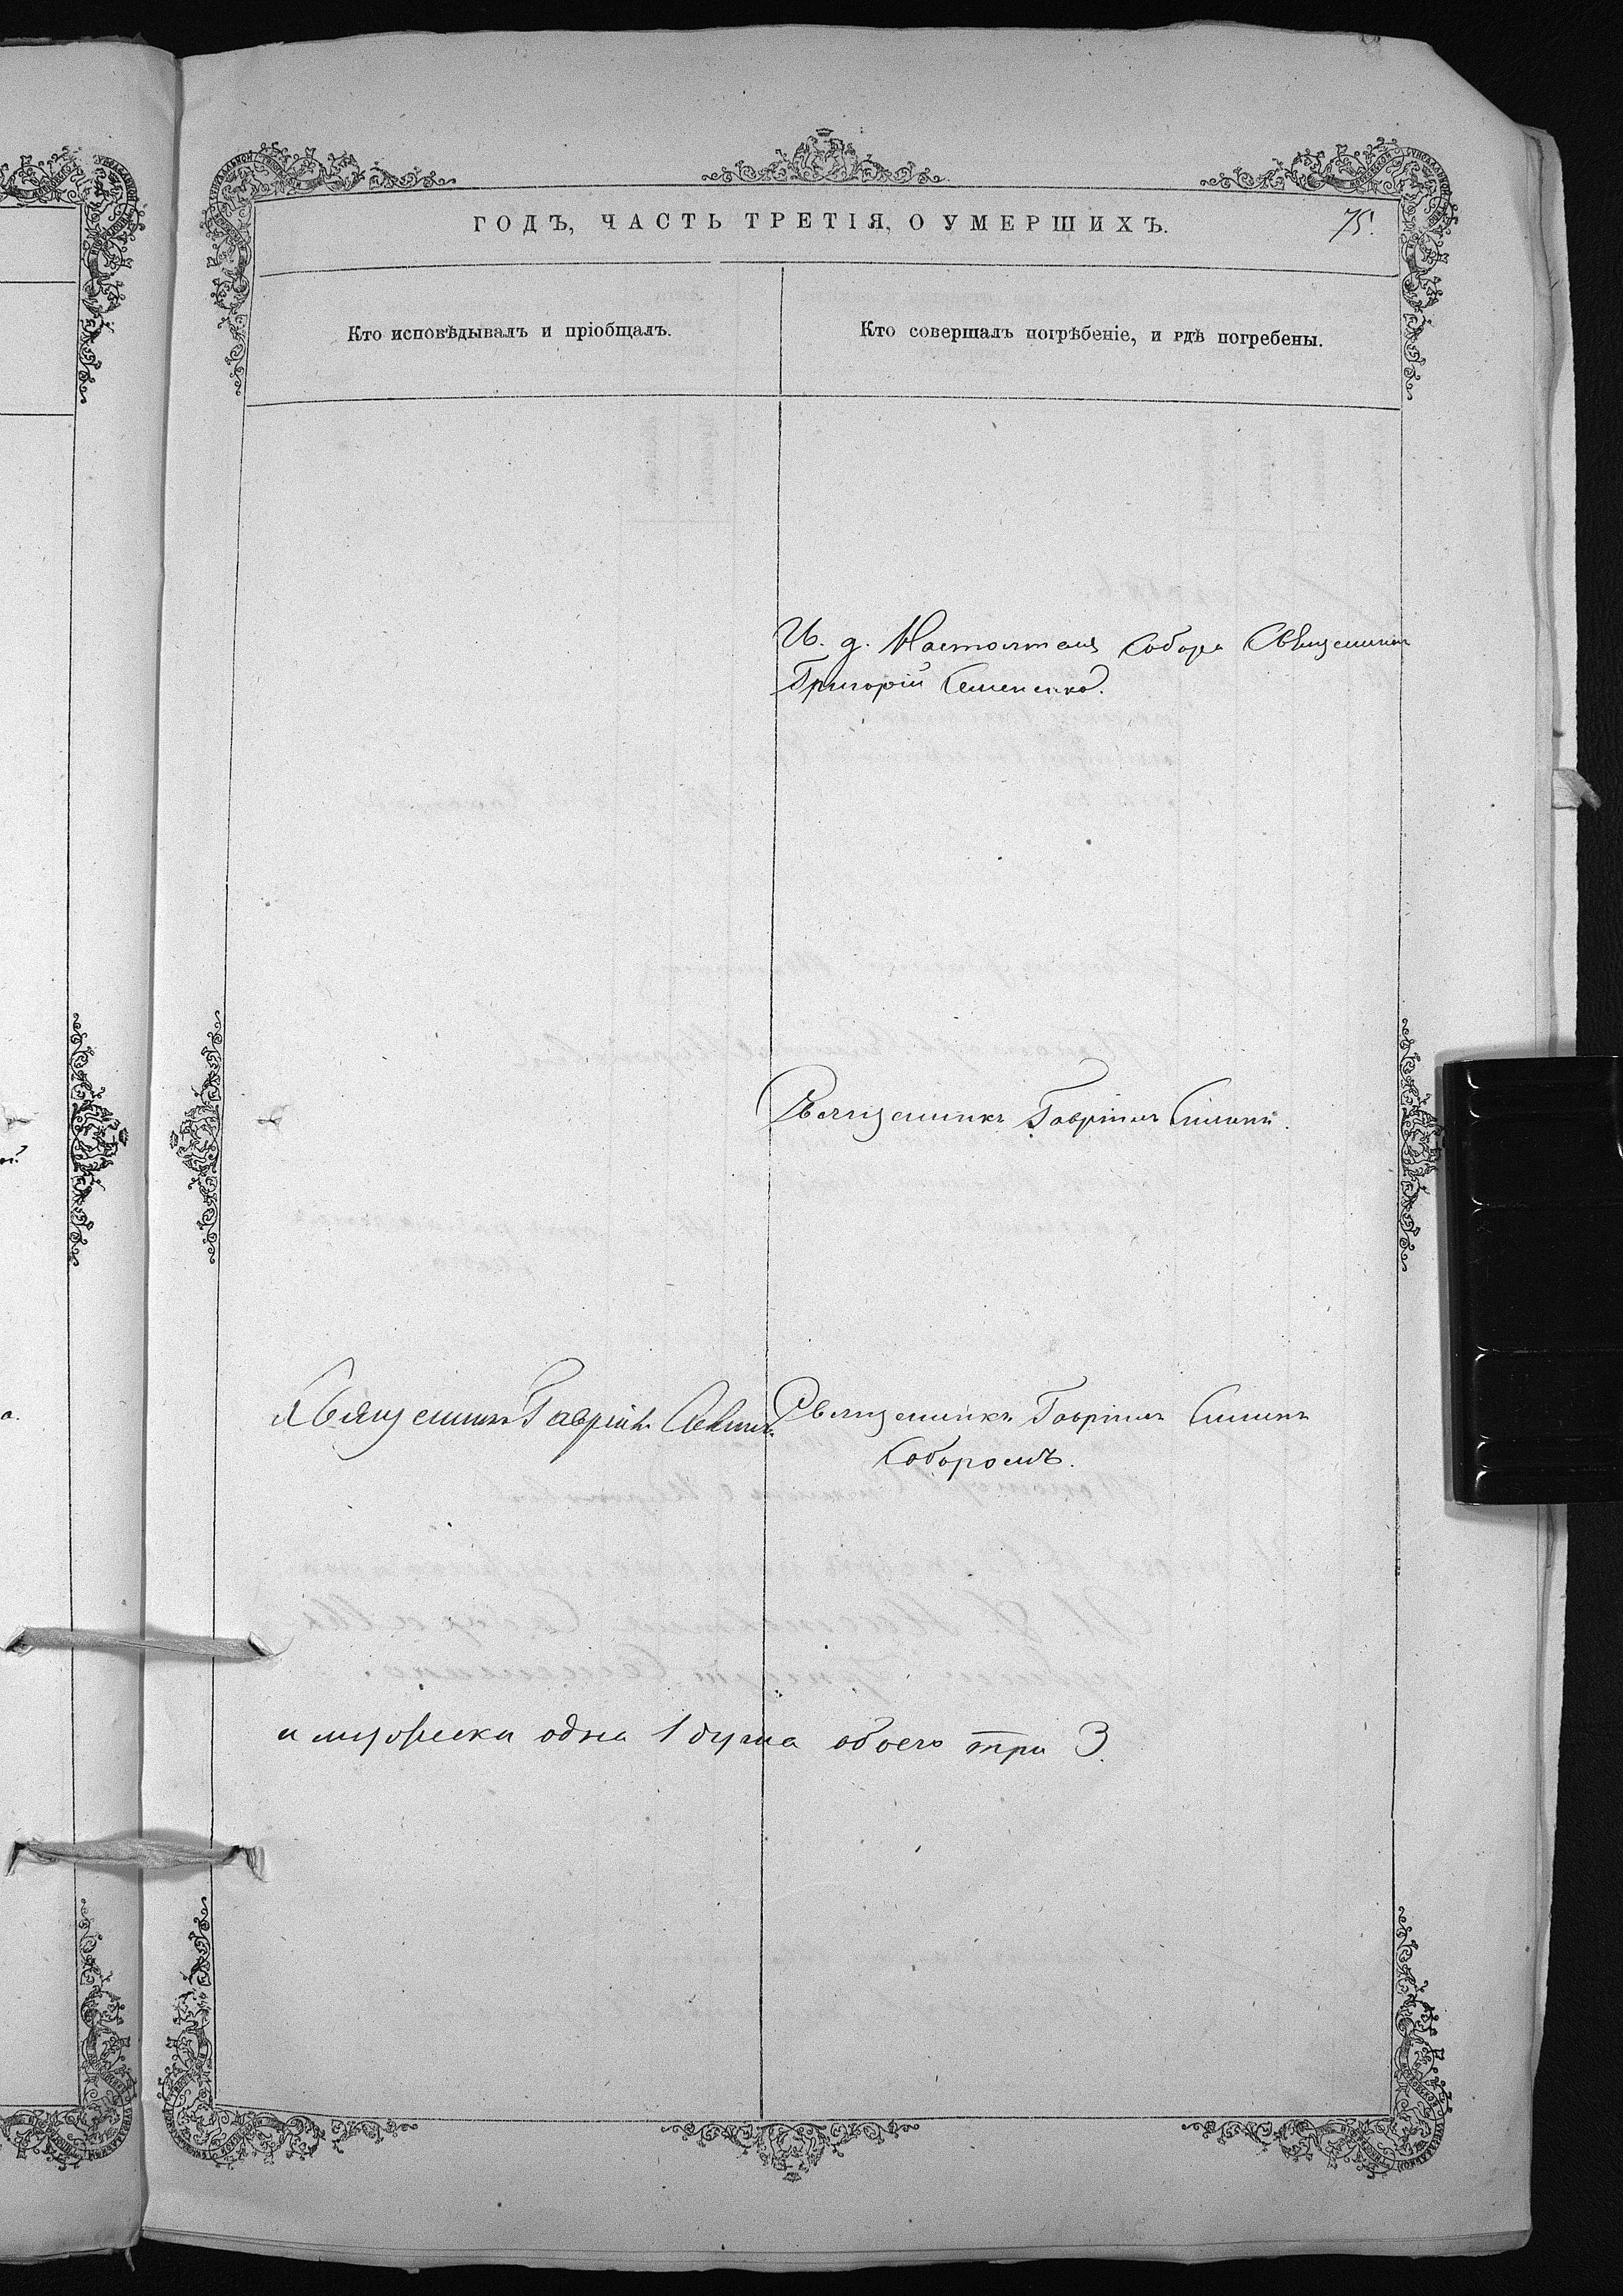 ГОДЪ, ЧАСТЬ ТРЕТІЯ, О УМЕРШИХЪ.
75.
Кто исповѣдывалъ и пріобщалъ.
Кто совершалъ погрѣбеніе, и гдѣ погребены.
И. д. Настоятеля Собора Священникъ
Григорій Семененко.
Священникъ Гавріилъ
Священникъ Гавріилъ
Священникъ Гавріилъ
Соборомъ.
и мужеска одна 1 душа обоего три 3.